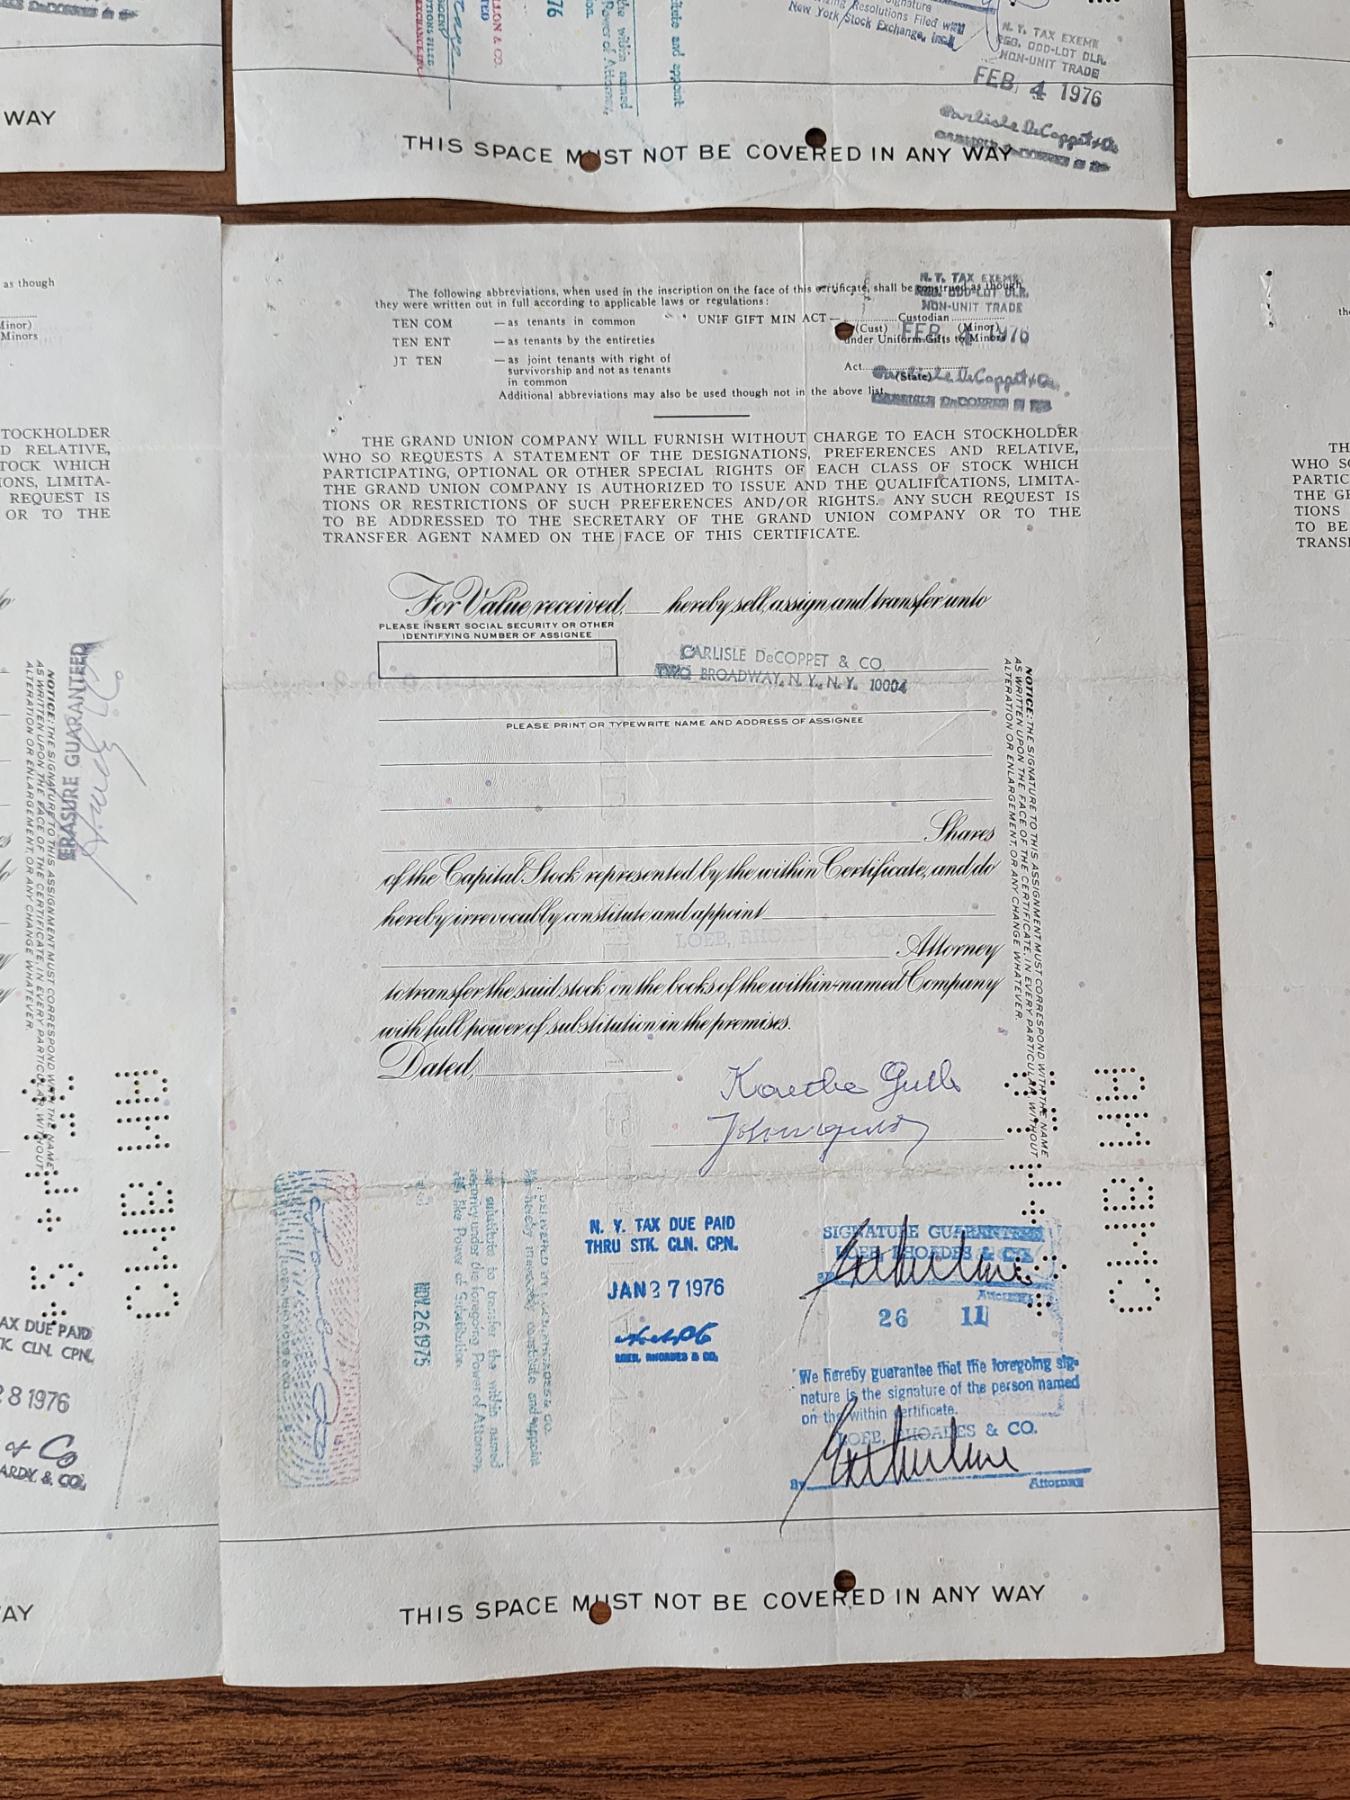 Signature
Resolutions Filed with
New York Stock Exchange, Inc.
N. Y. TAX EXEMPT
REG. ODD-LOT DLR.
NON-UNIT TRADE
FEB 4 1976
Carlisle DeCoppet & Co.
the within named
Power of Attorney,
WAY
THIS SPACE MUST NOT BE COVERED IN ANY WAY
The following abbreviations, when used in the inscription on the face of this certificate, shall be construed as though
they were written out in full according to applicable laws or regulations:
N. Y. TAX EXEMPT
REG. ODD-LOT DLR.
NON-UNIT TRADE
FEB 4 1976
Carlisle DeCoppet & Co.
TEN COM — as tenants in common
TEN ENT — as tenants by the entireties
JT TEN — as joint tenants with right of
survivorship and not as tenants
in common
UNIF GIFT MIN ACT — Custodian
(Cust) (Minor)
under Uniform Gifts to Minors
Act
(State)
Additional abbreviations may also be used though not in the above list.
THE GRAND UNION COMPANY WILL FURNISH WITHOUT CHARGE TO EACH STOCKHOLDER
WHO SO REQUESTS A STATEMENT OF THE DESIGNATIONS, PREFERENCES AND RELATIVE,
PARTICIPATING, OPTIONAL OR OTHER SPECIAL RIGHTS OF EACH CLASS OF STOCK WHICH
THE GRAND UNION COMPANY IS AUTHORIZED TO ISSUE AND THE QUALIFICATIONS, LIMITA-
TIONS OR RESTRICTIONS OF SUCH PREFERENCES AND/OR RIGHTS. ANY SUCH REQUEST IS
TO BE ADDRESSED TO THE SECRETARY OF THE GRAND UNION COMPANY OR TO THE
TRANSFER AGENT NAMED ON THE FACE OF THIS CERTIFICATE.
For Value received, hereby sell, assign and transfer unto
PLEASE INSERT SOCIAL SECURITY OR OTHER
IDENTIFYING NUMBER OF ASSIGNEE
CARLISLE DeCOPPET & CO.
TWO BROADWAY, N. Y., N. Y. 10004
PLEASE PRINT OR TYPEWRITE NAME AND ADDRESS OF ASSIGNEE
Shares
of the Capital Stock represented by the within Certificate, and do
hereby irrevocably constitute and appoint
LOEB, RHOADES & CO.
Attorney
to transfer the said stock on the books of the within-named Company
with full power of substitution in the premises.
Dated,
NOTICE: THE SIGNATURE TO THIS ASSIGNMENT MUST CORRESPOND WITH THE NAME
AS WRITTEN UPON THE FACE OF THE CERTIFICATE, IN EVERY PARTICULAR, WITHOUT
ALTERATION OR ENLARGEMENT, OR ANY CHANGE WHATEVER.
NOV. 26 1975
N. Y. TAX DUE PAID
THRU STK. CLN. CPN.
JAN 27 1976
LOEB, RHOADES & CO.
SIGNATURE GUARANTEED
LOEB, RHOADES & CO.
Attorney
26 11
We hereby guarantee that the foregoing sig-
nature is the signature of the person named
on the within certificate.
LOEB, RHOADES & CO.
By
Attorney
THIS SPACE MUST NOT BE COVERED IN ANY WAY
as though
(Minor)
Minors
STOCKHOLDER
D RELATIVE,
STOCK WHICH
IONS, LIMITA-
REQUEST IS
OR TO THE
ERASURE GUARANTEED
NOTICE: THE SIGNATURE TO THIS ASSIGNMENT MUST CORRESPOND WITH THE NAME
AS WRITTEN UPON THE FACE OF THE CERTIFICATE, IN EVERY PARTICULAR, WITHOUT
ALTERATION OR ENLARGEMENT, OR ANY CHANGE WHATEVER.
TAX DUE PAID
STK. CLN. CPN.
28 1976
HARDY & CO.
WAY
TH
WHO SO
PARTIC
THE GR
TIONS
TO BE
TRANS